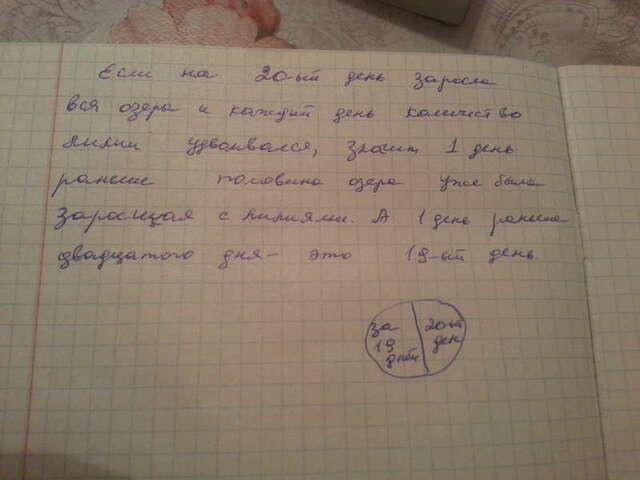 Если на 20-ый день заросла
вся озера и каждий день количество
лилии удвоивался, значит 1 день
раньше половина озера уже была
заросщая с лилиями. А 1 день раньше
двадцатого дня- это 19-ый день.
за 20-ый
19 день
дней